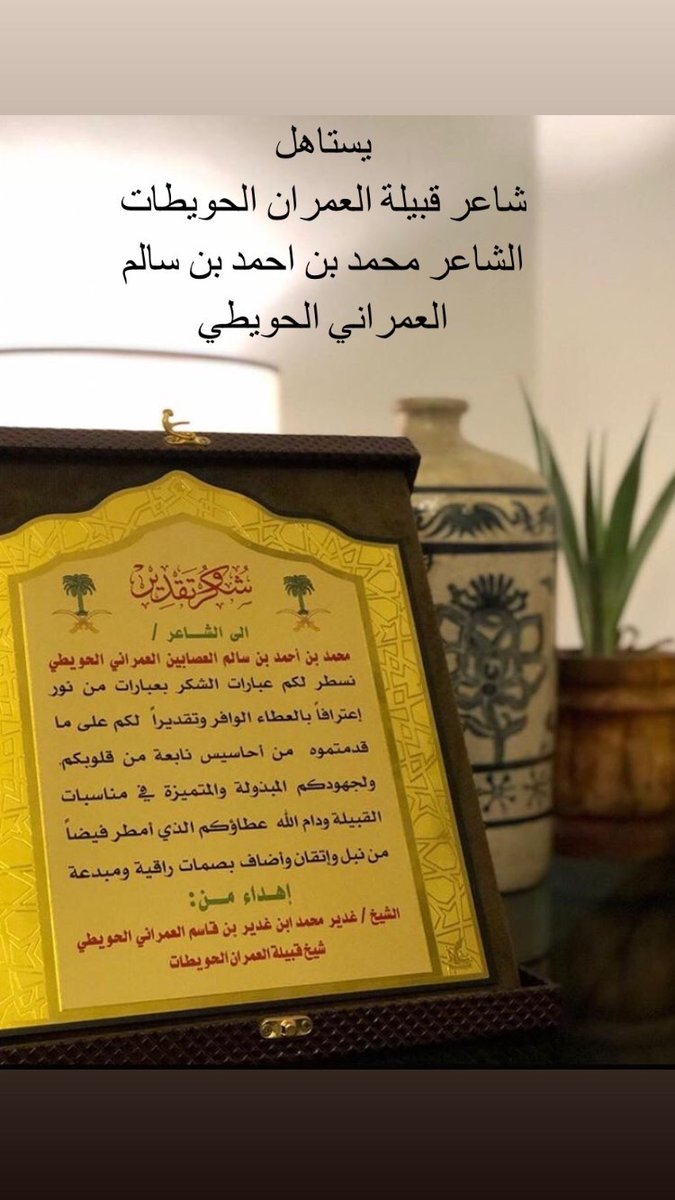 يستاهل
شاعر قبيلة العمران الحويطات
الشاعر محمد بن احمد بن سالم
العمراني الحويطي
شكر وتقدير
الى الشاعر /
محمد بن أحمد بن سالم العصابين العمراني الحويطي
نسطر لكم عبارات الشكر بعبارات من نور
إعترافاً بالعطاء الوافر وتقديراً لكم على ما
قدمتموه من أحاسيس نابعة من قلوبكم.
ولجهودكم المبذولة والمتميزة في مناسبات
القبيلة ودام الله عطاؤكم الذي أمطر فيضاً
من نبل وإتقان وأضاف بصمات راقية ومبدعة
إهداء من:
الشيخ / غدير محمد ابن غدير بن قاسم العمراني الحويطي
شيخ قبيلة العمران الحويطات